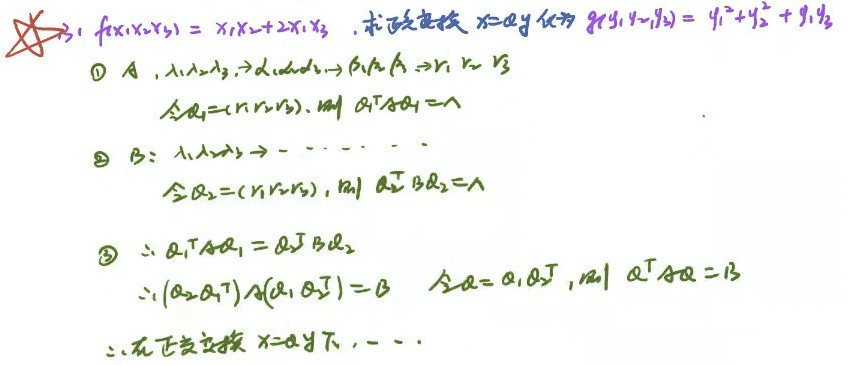 3. f(x₁x₂x₃) = x₁x₂+2x₁x₃ . 求正交变换 x=Qy 化为 g(y₁y₂y₃) = y₁²+y₂²+y₁y₃
① A, λ₁λ₂λ₃→α₁α₂α₃→β₁β₂β₃→γ₁ γ₂ γ₃
令Q₁=(γ₁γ₂γ₃). 则 Q₁ᵀAQ₁=Λ
② B: λ₁λ₂λ₃→ - - - - - - -
令Q₂=(γ₁γ₂γ₃), 则 Q₂ᵀBQ₂=Λ
③ ∴ Q₁ᵀAQ₁ = Q₂ᵀBQ₂
∴ (Q₂Q₁ᵀ)A(Q₁Q₂ᵀ)=B 令Q=Q₁Q₂ᵀ, 则 QᵀAQ=B
∴在正交变换 x=Qy下, - - -